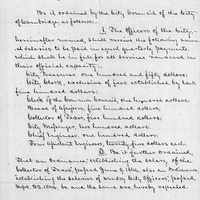 Be it ordained by the City Council of the City
of Cambridge, as follows:
1. The officers of the City,
hereinafter named, shall receive the following annu-
al salaries to be paid in equal quarterly payments,
which shall be in full for all services rendered in
their official capacity.
City Treasurer one hundred and fifty dollars.
City Clerk, exclusive of fees established by law,
five hundred dollars.
Clerk of the Common Council, one hundred dollars.
Board of Assessors, five hundred dollars.
Collector of Taxes, five hundred dollars.
City Messenger, two hundred dollars.
Chief Engineer, one hundred dollars.
Four Assistant Engineers, twenty five dollars each.
2. Be it further ordained,
That an Ordinance, establishing the salary of the
Collector of Taxes, passed June 9, 1846, also an Ordinance,
establishing the salaries of sundry City Officers, passed
Sept. 23. 1846, be and the same are hereby repealed.